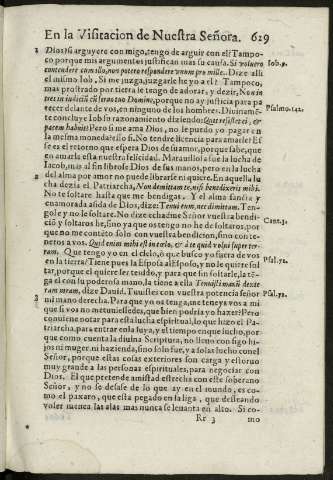 En la Visitacion de Nuestra Señora. 629
Dios me arguyere con migo, tengo de arguir con el? Tampo-
co porque mis argumentos justifican mas su causa. Si voluero
contendere cum illo, nos potero respondere vnum pro mille. Dize alli
el mismo Iob. Si me juzga, juzgarle he yo a el? Tampoco,
mas prostrado por tierra le tengo de adorar, y dezir, Non in
tres in iudiciũ cũ seruo tuo Domine, porque no ay justicia para pa
recer delante de vos, en ninguno de los hombres. Diuinamẽ-
te concluye Iob su razonamiento diziendo: Quis resistet ei, &
pacem habuit? Pero si me ama Dios, no le puedo yo pagar en
la mesma moneda? esso si. No tendre licencia para amarle? Es
se es el retorno que espera Dios de su amor, porque sabe, que
en amarle esta nuestra felicidad. Marauillosa fue la lucha de
Iacob, mas al fin librose Dios de sus manos, pero en la lucha
del alma por amor no puede librarse ni quiere. En aquella lu
cha dezia el Patriarcha, Non demittam te, nisi benedixeris mihi.
No te soltare hasta que me bendigas. Y el alma sancta y
enamorada asida de Dios, dize: Tenui eum, nec dimittam. Ten-
gole y no le soltare. No dize echadme Señor vuestra bendi-
ció y soltaros he, sino ya que os tengo no he de soltaros, por
que no me contẽto solo con vuestra bendicion, sino con te-
neros a vos. Quid enim mihi est in cœlo, & à te quid volui super ter-
ram. Que tengo yo en el cielo, ò que busco yo fuera de vos
en la tierra? Tiene pues la Esposa al Esposo, y no le quiere sol
tar, porque el quiere ser tenido, y para que sin soltarle, la tẽ-
ga el con su poderosa mano, la tiene a ella Tenuisti manũ dexte
ram meam, dize Dauid. Tuuistes con vuestra potencia señor
mi mano derecha. Para que yo os tenga, me teneys vos a mi
que si vos no me tuuiessedes, que bien podria yo hazer? Pero
conuiene notar para esta lucha espiritual, lo que hizo el Pa-
triarcha, para entrar en la suya, y el tiempo en que lucho, por
que como cuenta la diuina Scriptura, no lleuo con sigo hi-
jos ni muger, ni hazienda, sino solo fue, y a solas lucho con el
Señor, porque estas cosas exteriores son carga y estoruo
muy grande a las personas espirituales, para negociar con
Dios. El que pretende amistad estrecha con este soberano
Señor, y no se desase de lo que ay en el mundo, es co-
mo el paxaro, que esta pegado en la liga, que desseando
voler menea las alas mas nunca se leuanta en alto. Si co-
Rr 3 mo
Iob. 9.
Psalmo. 142.
Cant. 3.
Psal. 72.
Psal. 72.
2
3